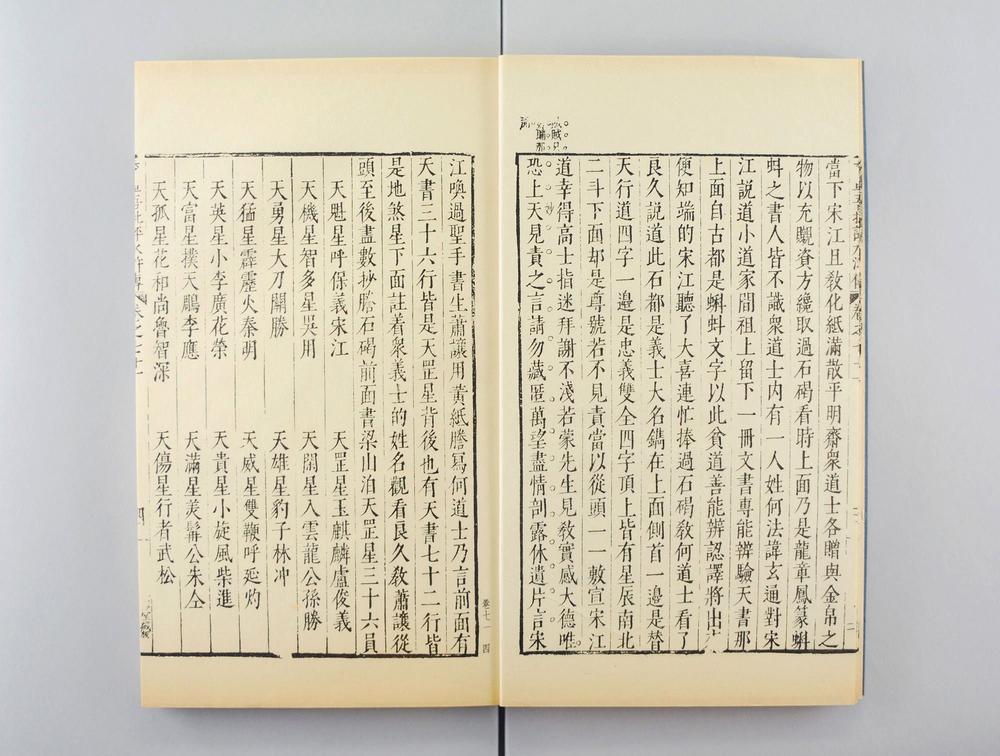 當下宋江且教化紙滿散平明齋衆道士各贈與金帛之
物以充賙資方纔取過石碣看時上面乃是龍章鳳篆蝌
蚪之書人皆不識衆道士內有一人姓何法諱玄通對宋
江說道小道家間祖上留下一冊文書專能辨驗天書那
上面自古都是蝌蚪文字以此貧道善能辨認譯將出
便知端的宋江聽了大喜連忙捧過石碣教何道士看了
良久說道此石都是義士大名鐫在上面側首一邊是替
天行道四字一邊是忠義雙全四字頂上皆有星辰南北
二斗下面却是尊號若不見責當以從頭一一敷宣宋江
道幸得高士指迷拜謝不淺若蒙先生見教實感大德唯
恐上天見責之言請勿藏匿萬望盡情剖露休遺片言宋
妙
江喚過聖手書生蕭讓用黃紙謄寫何道士乃言前面有
天書三十六行皆是天罡星背後也有天書七十二行皆
是地煞星下面註着衆義士的姓名觀看良久教蕭讓從
頭至後盡數抄謄石碣前面書梁山泊天罡星三十六員
天魁星呼保義宋江 天罡星玉麒麟盧俊義
天機星智多星吳用 天閒星入雲龍公孫勝
天勇星大刀關勝 天雄星豹子林冲
天猛星霹靂火秦明 天威星雙鞭呼延灼
天英星小李廣花榮 天貴星小旋風柴進
天富星撲天鵰李應 天滿星美髯公朱仝
天孤星花和尚魯智深 天傷星行者武松
卷七一 四